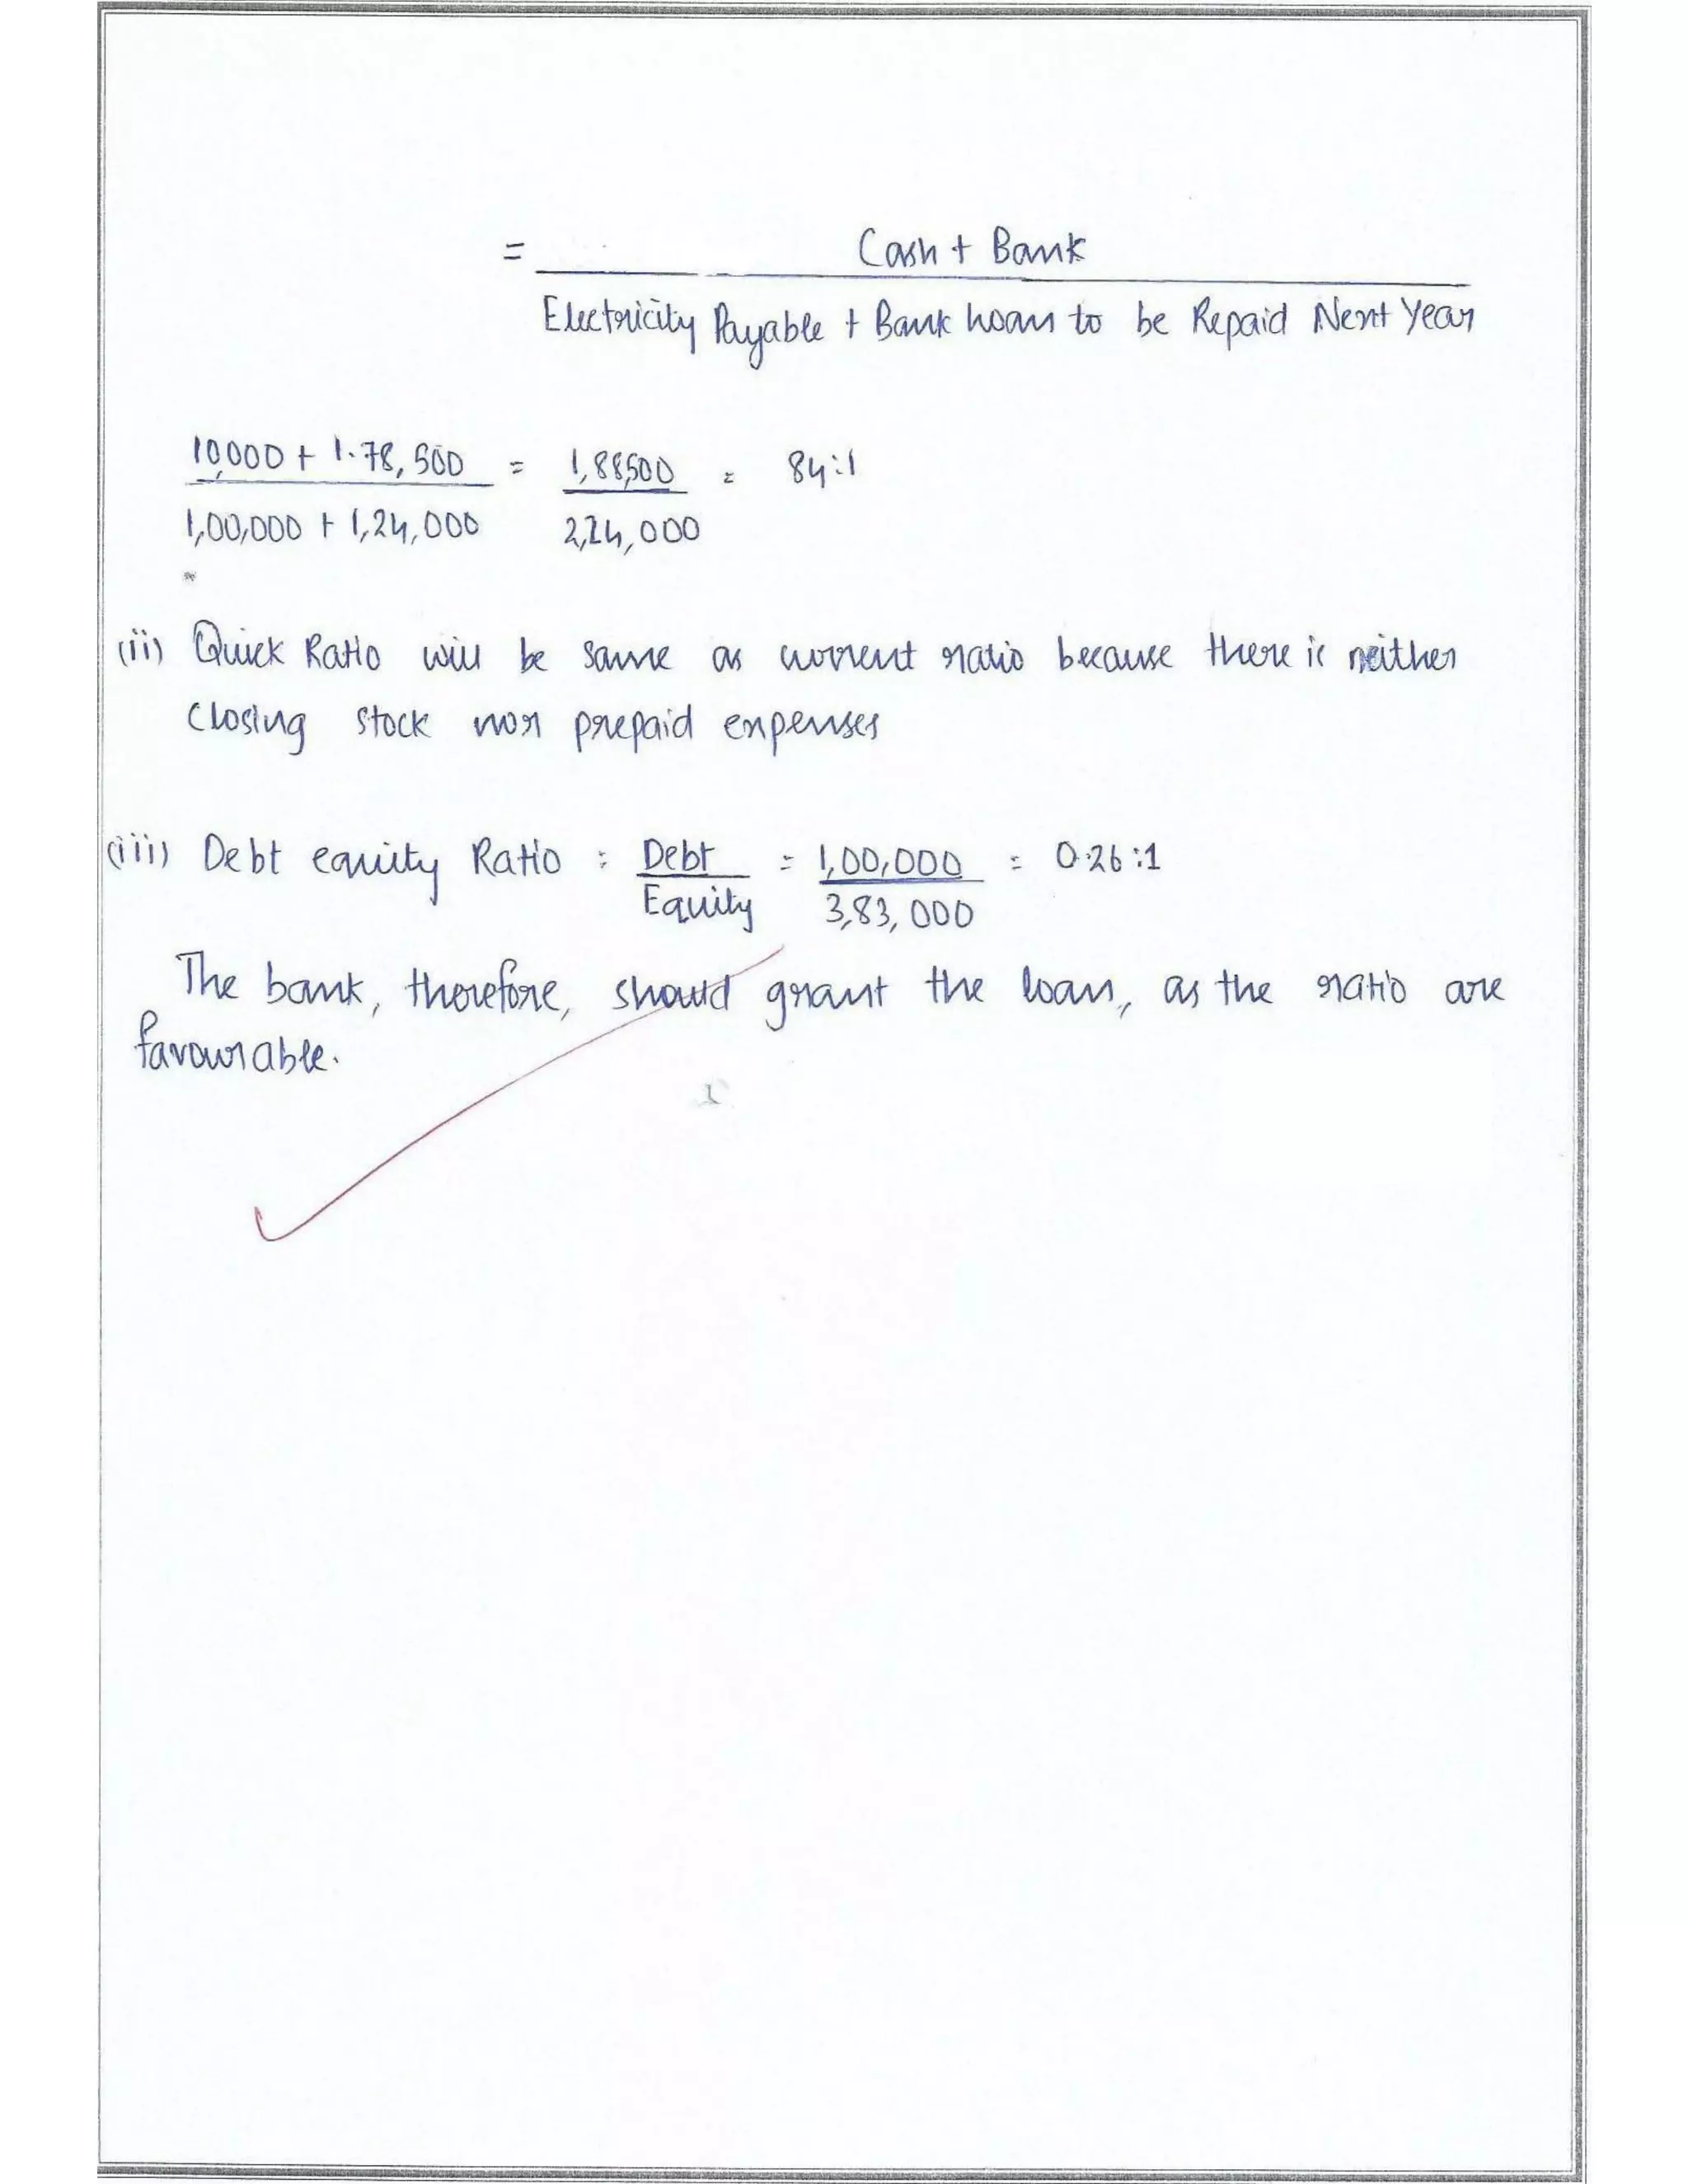 = Cash + Bank
Electricity Payable + Bank Loan to be Repaid Next Year
10,000 + 1.78,500 = 1,88,500 = 84:1
1,00,000 + 1,24,000 2,24,000
(ii) Quick Ratio will be same as current ratio because there is neither
Closing stock nor prepaid expenses
(iii) Debt equity Ratio : Debt = 1,00,000 = 0.26:1
Equity 3,83,000
The bank, therefore, should grant the loan, as the ratio are
favourable.